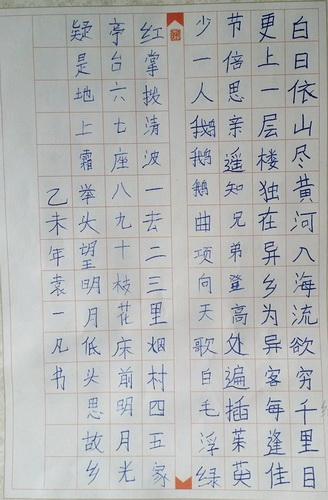 白日依山尽黄河入海流欲穷千里目
更上一层楼独在异乡为异客每逢佳
节倍思亲遥知兄弟登高处遍插茱英
少一人鹅鹅鹅曲项向天歌白毛浮绿
红掌拨清波一去二三里烟村四五家
亭台六七座八九十枝花床前明月光
疑是地上霜举头望明月低头思故乡
乙未年袁一凡书